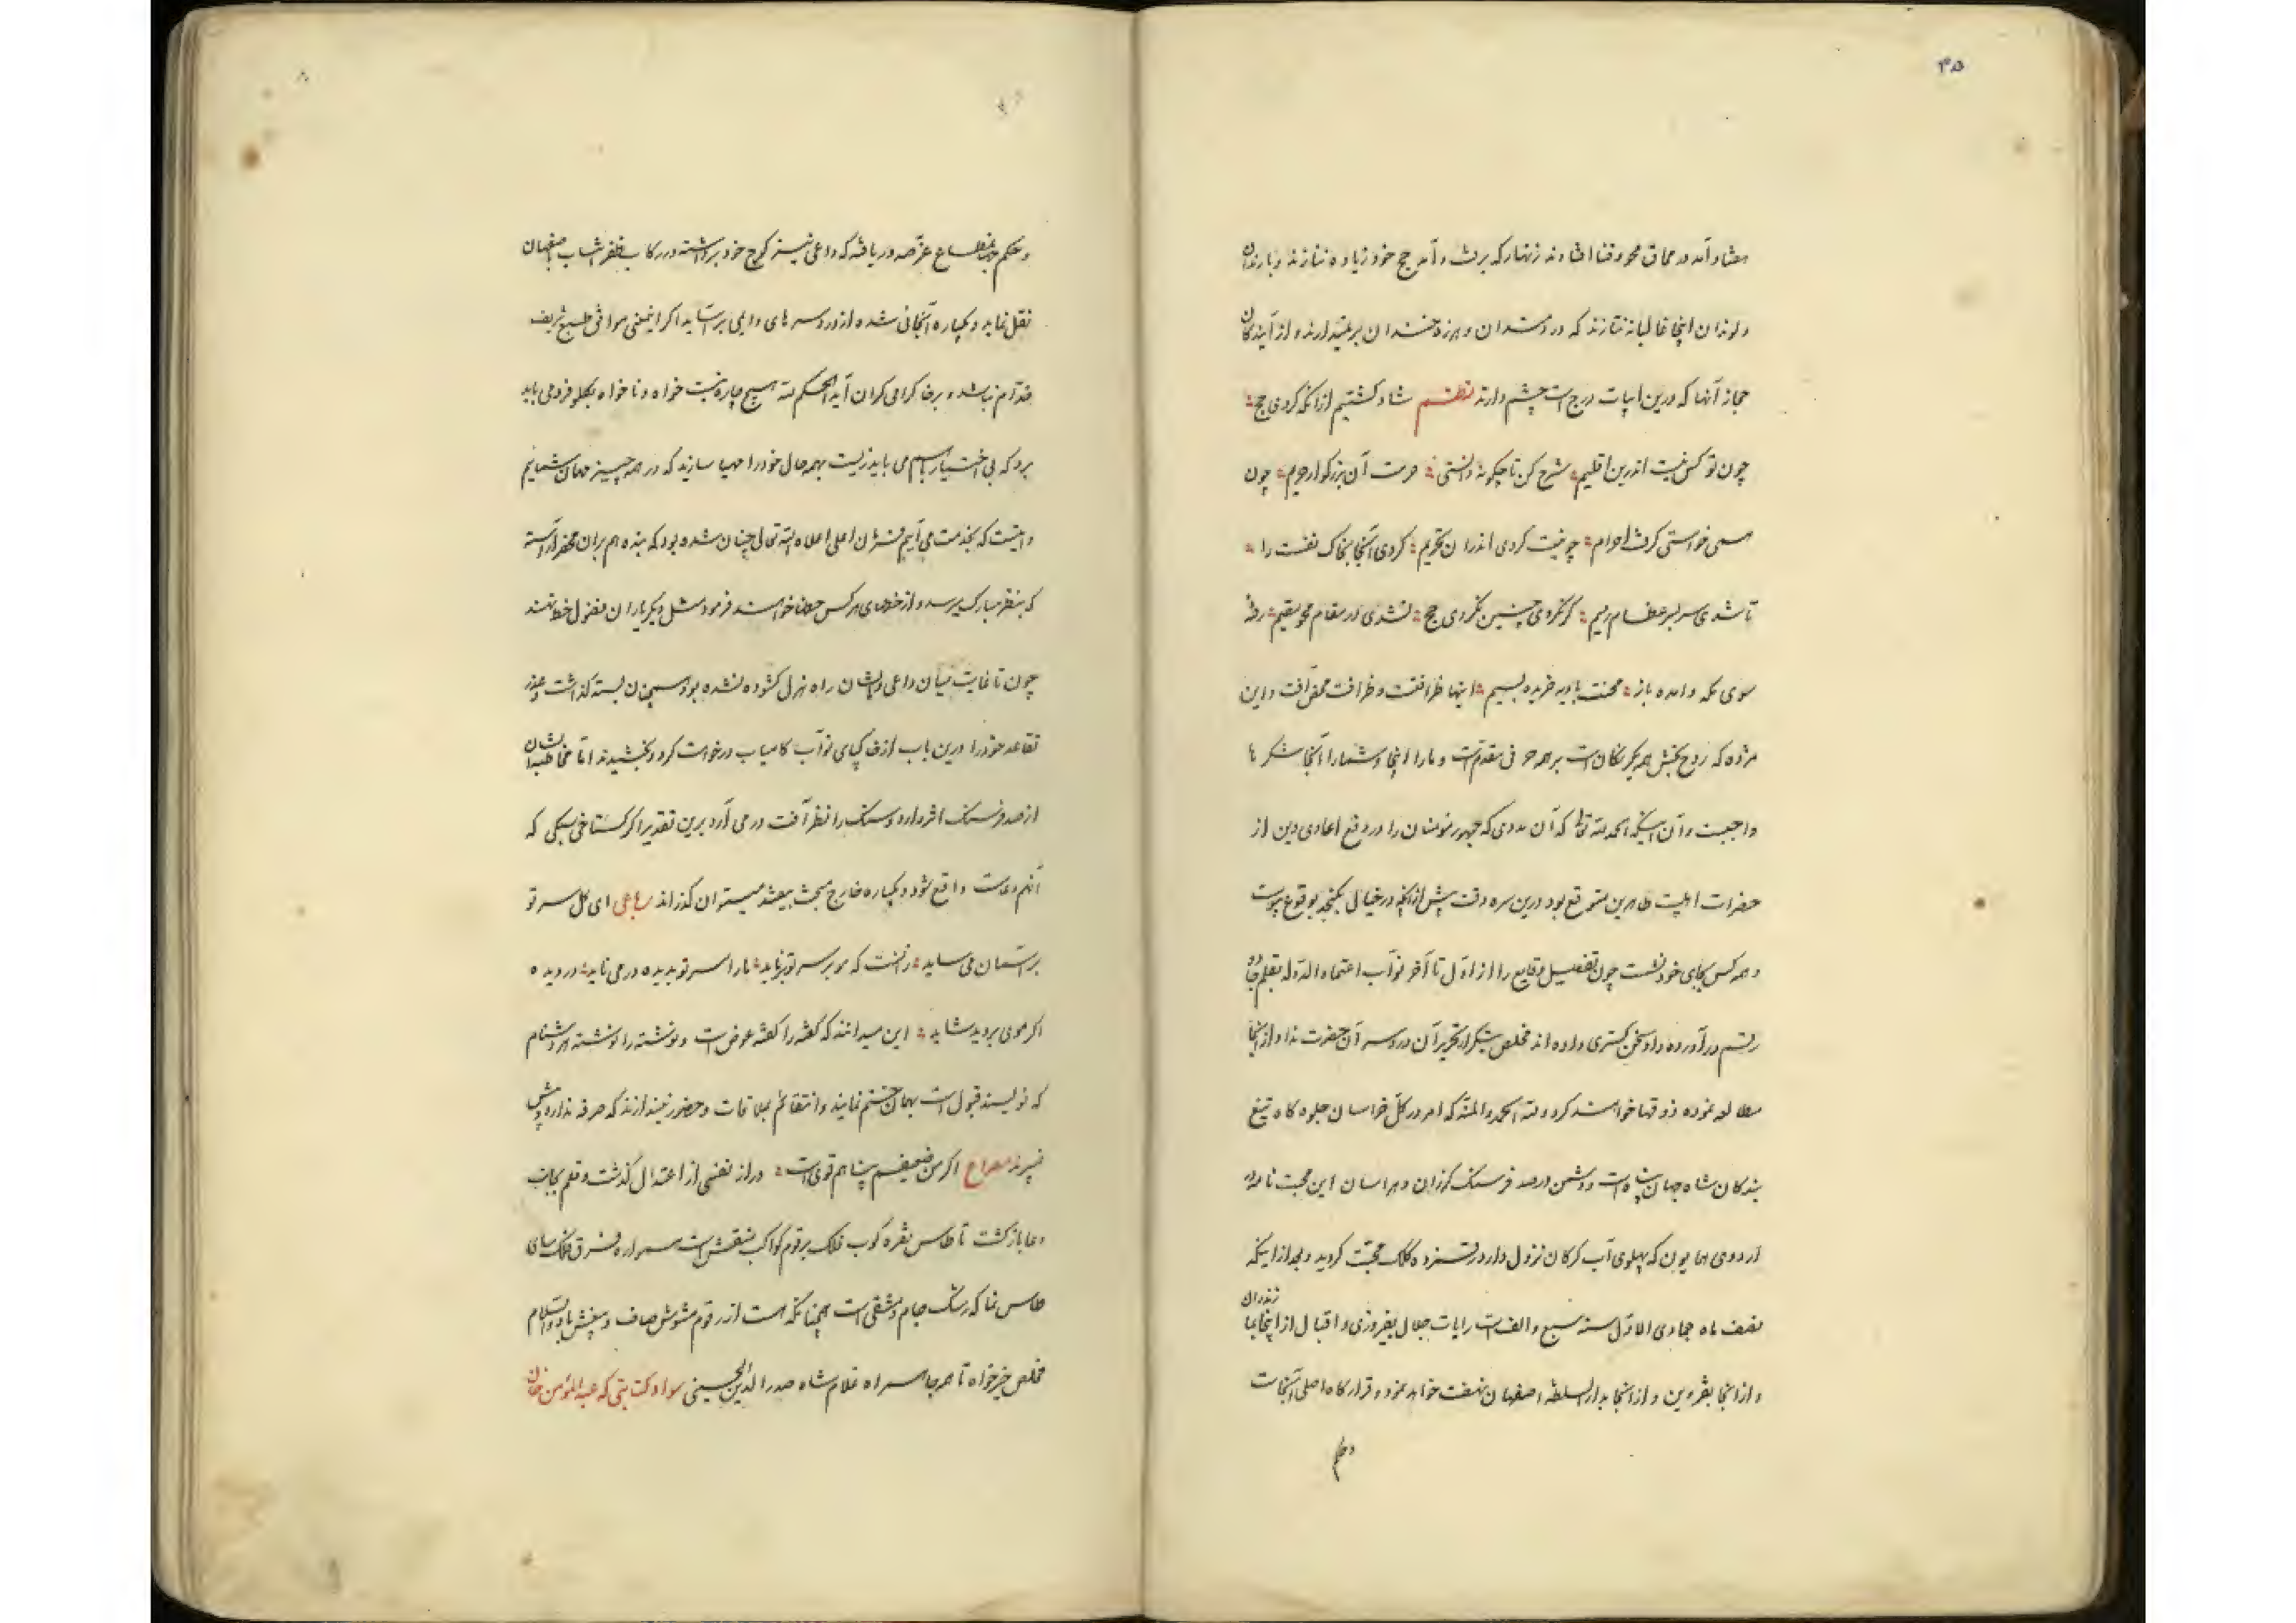 ۳۵
معتاد آمد در محاق محو و فنا افتادند زنهار که برفت و آمد حج خود زیاده ننازند و بارندان
و لوندان اینجا غالبانه نتازند که دردمندان و هرزه خندان برنمیدارند و از آیندکان
حجاز آنها که درین ابیات درج است چشم دارند نظم شاد کشتیم از انکه کردی حج
چون تو کس نیست اندرین اقلیم شرح کن تا چکونه داشتی حرمت آن بزرکوار حریم چون
همی خواستی کرفت احرام چه نیت کردی اندران تحریم کردی آنجا بخاک نفست را
تا شدی سر بسر عظام رمیم کر نکردی چنین نکردی حج نشدی در مقام محو مقیم رفته
سوی مکه و آمده باز محنت بادیه خریده بسیم اینها ظرافتست و ظرافت محض آفت و این
مژده که روح بخش همه یکرنکان است بر همه حرفی مقدم است و ما را اینجا و شما را آنجا شکرها
واجبست و آن اینکه الحمد لله تعالی که آن مددی که جمهور مؤمنان را در دفع اعادی دین از
حضرات اهلبیت طاهرین متوقع بود درین سر وقت پیش از آنکه در خیال بکنجد بوقوع پیوست
و همه کس بجای خود نشست چون تفصیل وقایع را از اول تا آخر نواب اعتماد الدوله بقلم جادو
رقم در آورده داد سخن کستری داده اند مخلص بتکرار تحریر آن دردسر آن حضرت نداد از آنجا
مطالعه نموده ذوقها خواهند کرد و لله الحمد و المنه که امروز کل خراسان جلوه کاه تیغ
بندکان شاه جهان پناه است و دشمن در صد فرسنک لرزان و هراسان این محبت نامه از
اردوی همایون که پهلوی آب کرکان نزول دارد رقمزده کلک محبت کردید و بعد از اینکه
نصف ماه جمادی الاول سنه سبع و الف است رایات جلال بفیروزی و اقبال از اینجا بمازندران
و از آنجا بقزوین و از آنجا بدار السلطنه اصفهان نهضت خواهد نمود و قرارکاه اصلی آنجاست
و حکم
و حکم جهانمطاع عز صدور یافته که داعی نیز کوچ خود برداشته در رکاب ظفر انتساب باصفهان
نقل نماید و یکباره آنجائی شده از دردسرهای دایمی بر آساید اکر اینمعنی موافق طبع شریف
خدام نباشد و بر خاطر کرامی کران آید الحکم لله هیچ چاره نیست خواه و ناخواه بکلو فرو می باید
برد که بی اختیار بهم می باید زیست بهمه حال خود را مهیا سازند که در همه چیز مهمان شمائیم
و اینست که بخدمت می آییم نشان اعلی اعلاه الله تعالی چنان شده بود که بنده هم بران محضر آراسته
که بنظر مبارک برسد و از خطهای هر کس حظها خواهند فرمود مثل دیکر یاران فضول خط نهند
چون تا غایت میان داعی و ایشان راه هزل کشوده نشده بود همچنان بسته کذاشت و عذر
تقاعد خود را درین باب از نواب کامیاب درخواست کرد و بخشیدند اما مخاطبه ایشان
از صد فرسنک اثر دارد و سنک را نظر آفت در می آرد برین تقدیر اکر کستاخی سبکی که
آنهم دعاست واقع شود و یکباره خارج مبحث نباشد میتوان کذراند رباعی ای کل سر تو
بر آسمان می ساید زانست که مو بر سر تو برناید ما را سر تو بدیده در می ناید در دیده
اکر موی بروید شاید این میدانند که کفته را کفته عوض است و نوشته را نوشته هر دشنام
که نویسند قبول است بهمان ختم نمایند و انتقام بملاقات و حضور نیندازند که صرفه ندارد و پیش
نمیبرند مصراع اکر من ضعیفم پناهم قوی است دراز نفسی از اعتدال کذشت و قلم بجانب
دعا بازکشت تا طاس نقره کوب فلک برقوم کواکب منقش است همواره فرق فلک سای
طاس نما که رشک جام دمشقی است همچنانکه هست از رقوم مشوش صاف و بیغش باد و السلام
مخلص خیرخواه تا همه جا همراه غلام شاه صدر الدین الحسینی سواد کتابتی که عبد المؤمن خان